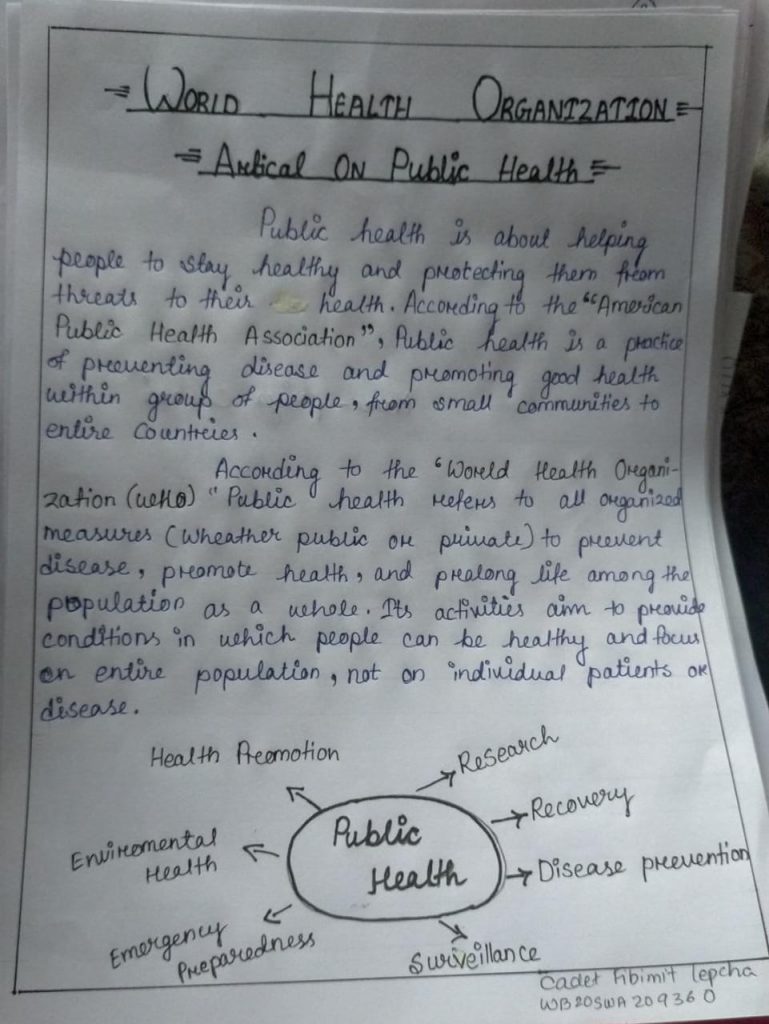 World Health Organization
Artical On Public Health
Public health is about helping
people to stay healthy and protecting them from
threats to their health. According to the "American
Public Health Association", Public health is a practice
of preventing disease and promoting good health
within group of people, from small communities to
entire Countries.
According to the "World Health Organi-
zation (WHO) "Public health refers to all organized
measures (Wheather public or private) to prevent
disease, promote health, and prolong life among the
population as a whole. Its activities aim to provide
conditions in which people can be healthy and focus
on entire population, not on individual patients or
disease.
Health Promotion
Research
Recovery
Enviromental
Health
Public
Health
Disease prevention
Emergency
Preparedness
Surveillance
Cadet Fibimit lepcha
WB20SWA209360